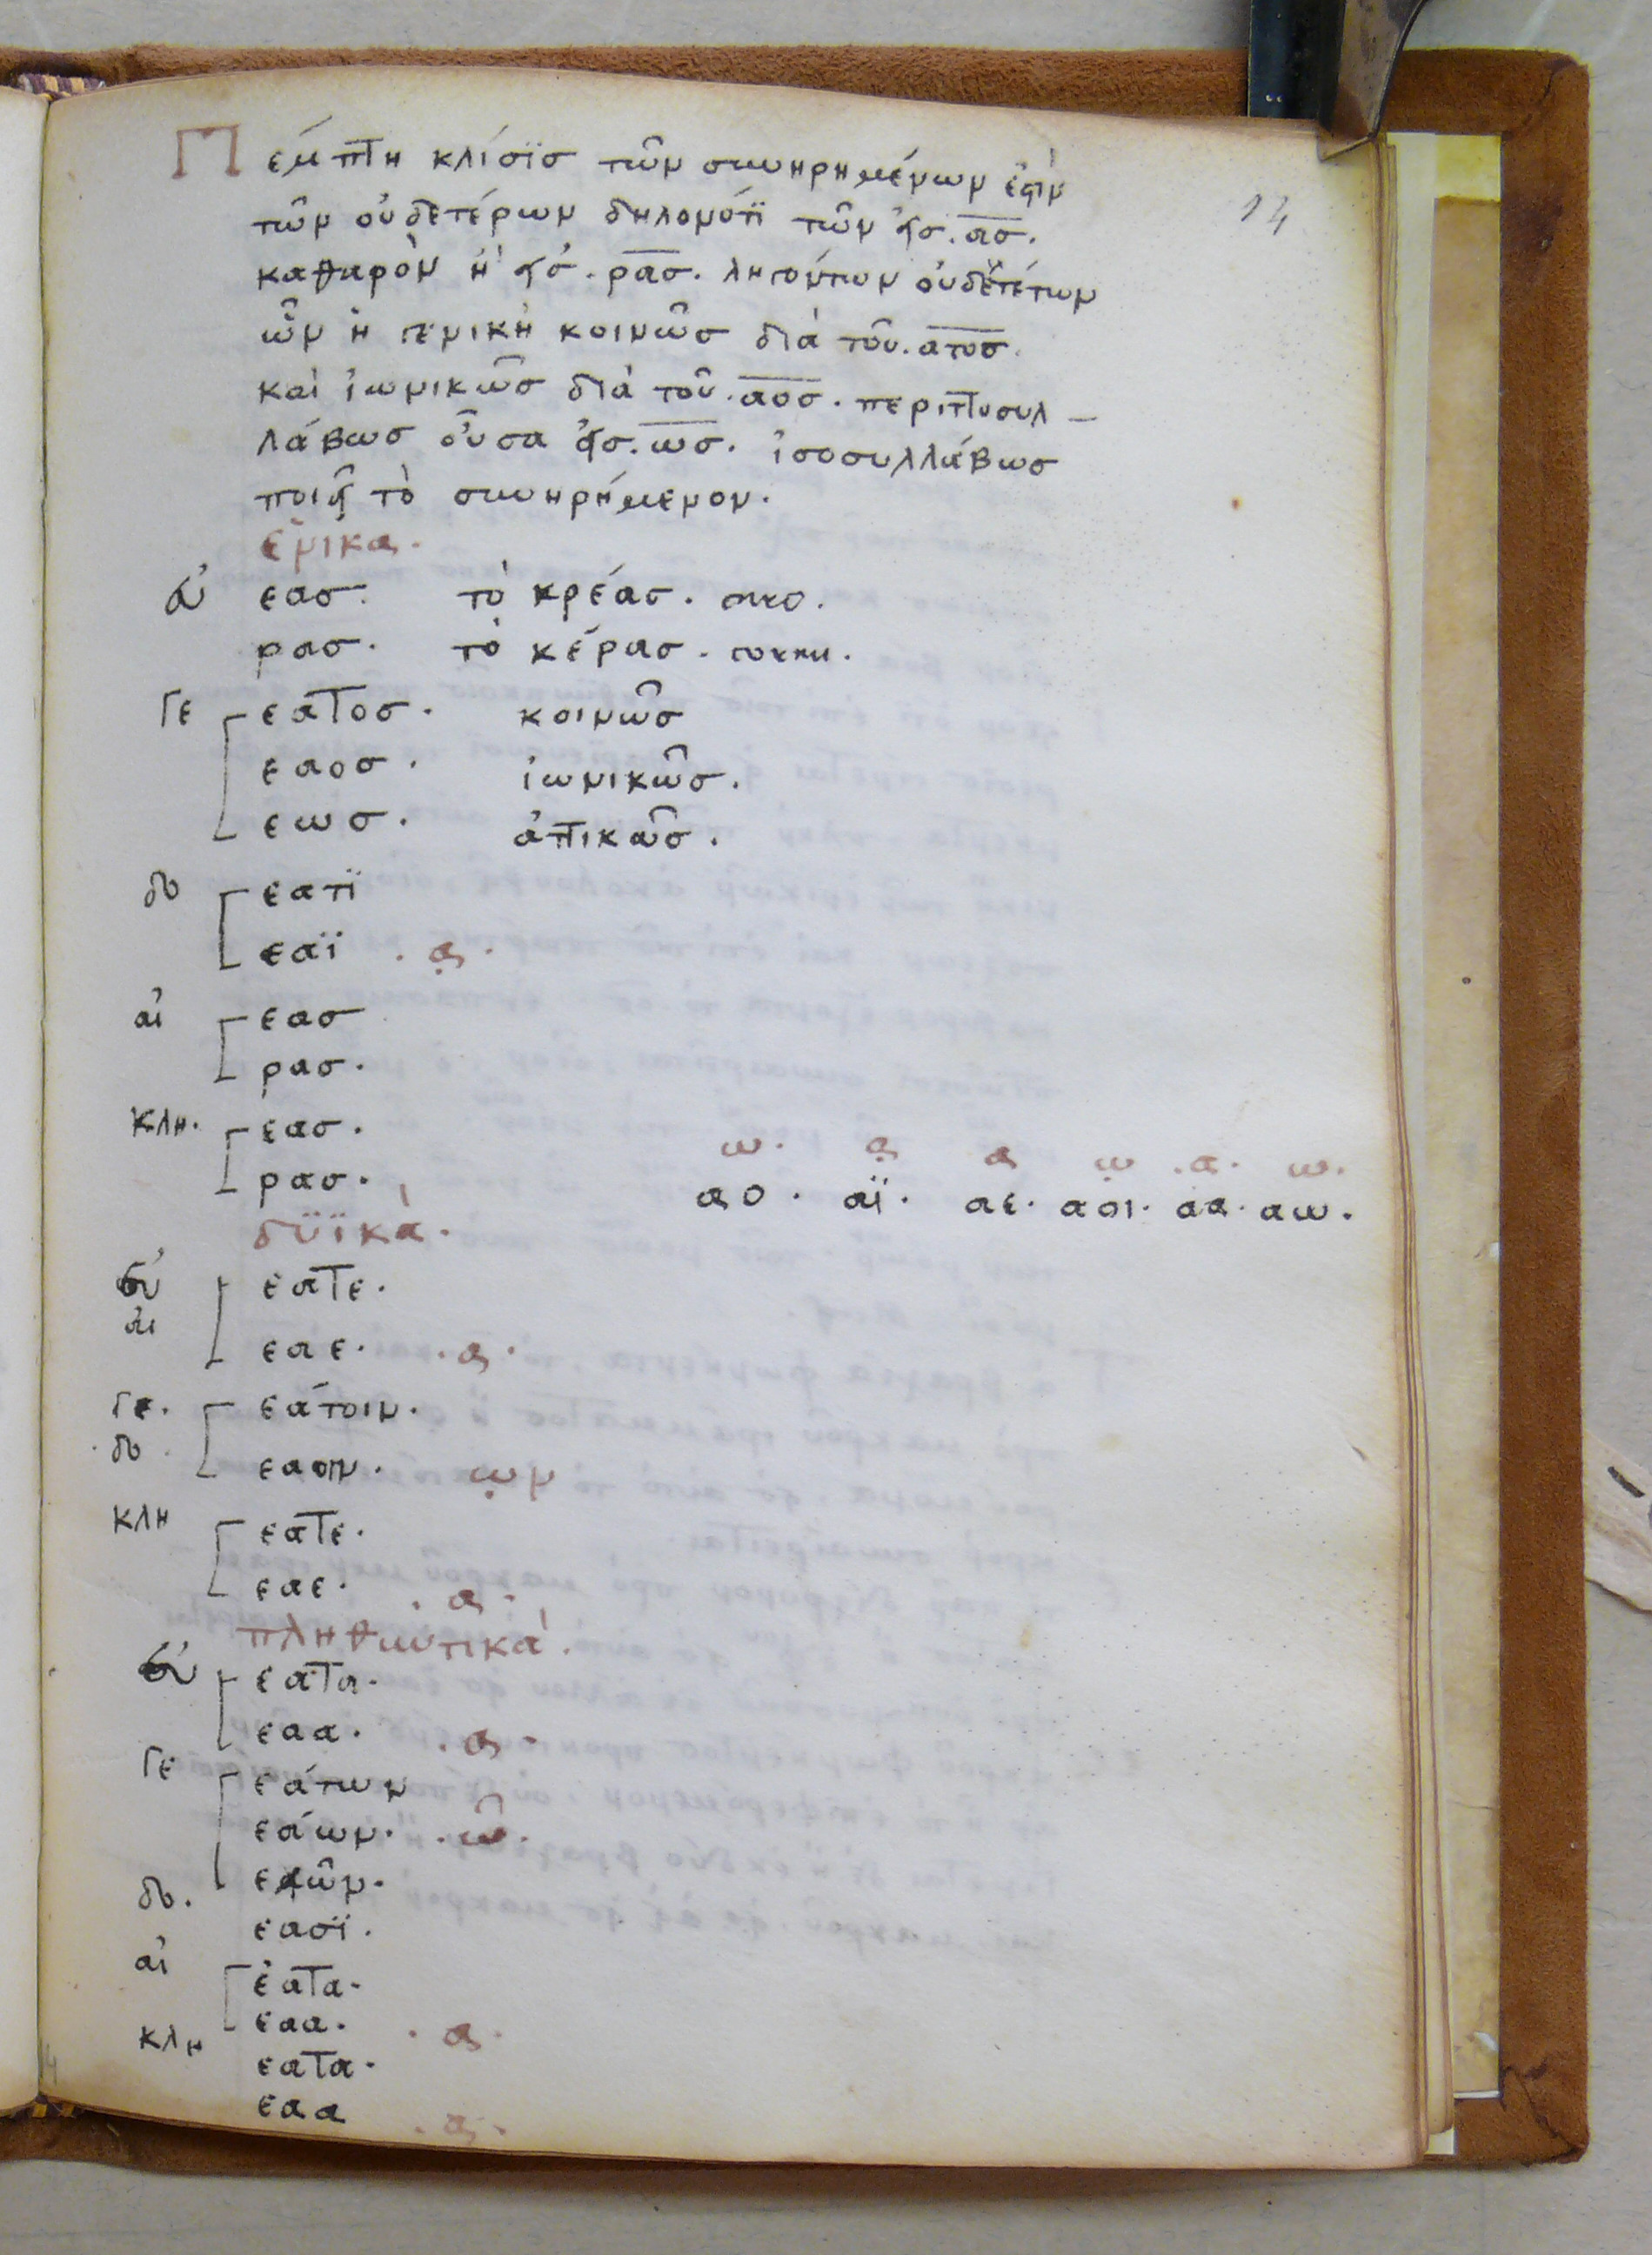 Πέμπτη κλίσϊσ τῶν συνηρημένων ἐστὶν
τῶν οὐδετέρων δηλονότϊ τῶν εἰσ. ασ.
14
καθαρὸν ἢ εἰσ. ρασ. ληγόντων οὐδετέρων
ὧν ἡ γενικὴ κοινῶσ διὰ τοῦ. ατοσ.
καὶ ἰωνικῶσ διὰ τοῦ. αοσ. περιττοσυλ-
λάβωσ οὖσα εἰσ. ωσ. ἰσοσυλλάβωσ
ποιεῖ τὸ συνηρήμενον.
ἑνικα.
εασ. τὸ κρέασ.
ρασ. τὸ κέρασ. cornu.
Γε εατοσ. κοινῶσ
εαοσ. ἰωνικῶσ.
εωσ. ἀττικῶσ.
δο εατϊ
εαϊ .ᾳ.
αἰ εασ
ρασ.
κλη. εασ.
ω. ᾳ α ῳ .α. ω.
ρασ. αο. αϊ. αε. αοι. αα. αω.
δϋϊκὰ.
εὐ εατε.
αἰ
εαε. .α.
Γε. εάτοιν.
δο
εαοιν. ῳν
κλη εατε.
εαε. .α.
πληθυντικά.
εὐ εατα.
εαα. .α.
Γε εάτων
εάων. .ῶ.
εῶν.
δο. εασϊ.
αἰ εατα.
εαα. .α.
κλη εατα.
εαα .α.